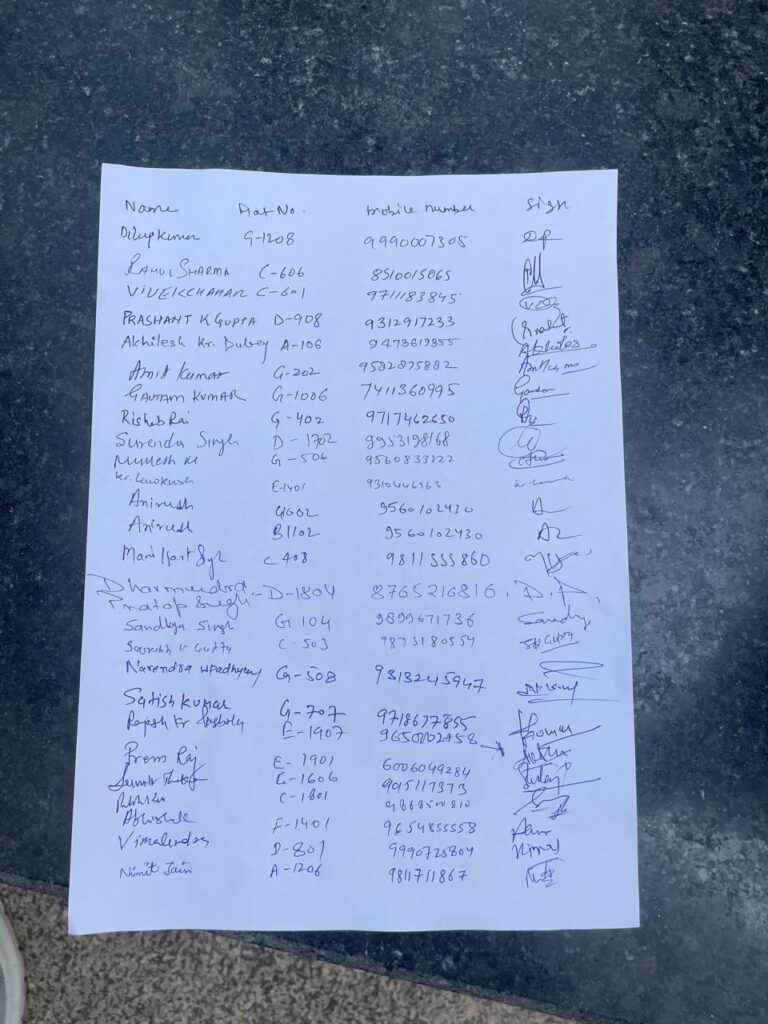 Name Flat No. Mobile number Sign
Dilip Kumar G-1208 9990007305
RAHUL SHARMA C-606 8510015065
VIVEK CHAHAR C-601 9711183845
PRASHANT K GUPTA D-908 9312917233
Akhilesh Kr. Dubey A-106 9473619355 Akhilesh
Amit Kumar G-202 9582875882
GAUTAM KUMAR G-1006 7411360995
Rishab Rai G-402 9717462650
Surendra Singh D-1702 9953198168
Mukesh Kr. G-506 9560833122
Kr. Lavkush E-1401 9310446962
Anirudh G602 9560102430
Anirudh B1102 9560102430
C 408 9811555860
Dharmendra Pratap Singh - D-1804 8765216816. D.P.
Sandhya Singh G 104 9899671736 Sandhya
Saurabh K Gupta C-503 9873180554
Narendra Upadhyay G-508 9313245947
Satish Kumar G-707 9718677855
Rajesh Kr E-1907 9650202458
Prem Raj E-1901 6006049284
G-1606 9015117373
C-1801 9868500810
Abhishek F-1401 9654855558
Vimalendra D-801 9990725804 Vimal
Nimit Jain A-1206 9811711867